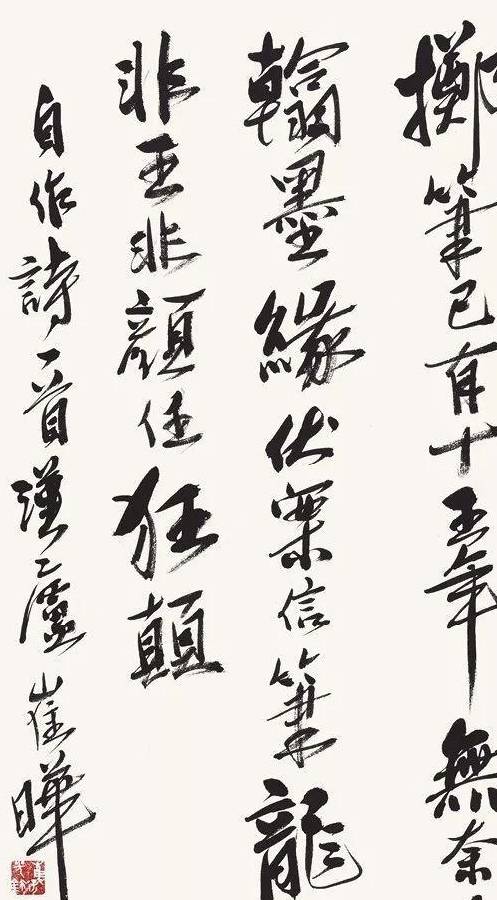 擲筆已有十五年無奈
翰墨緣伏案信筆龍
非王非顏任狂顛
自作詩一首崔曄